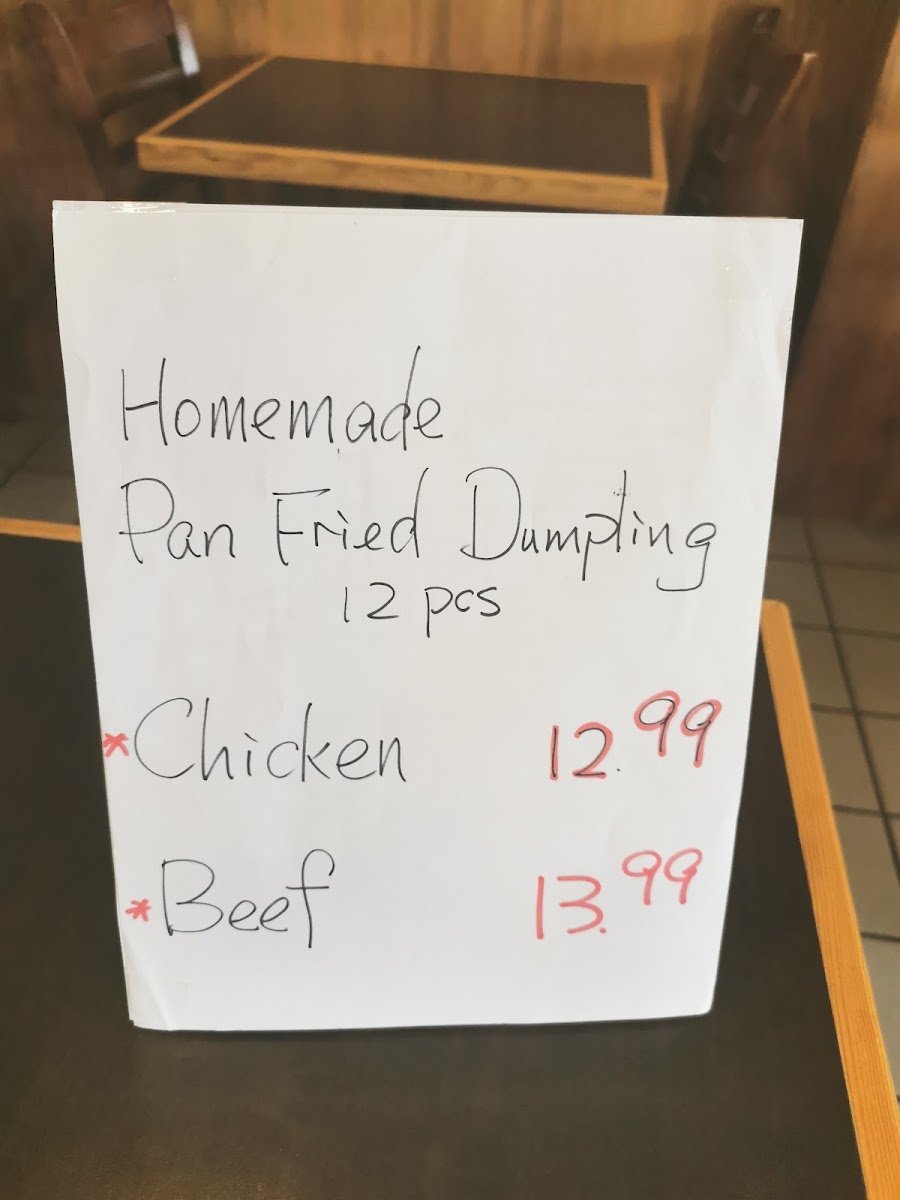 Homemade
Pan Fried Dumpling
12 pcs
*Chicken 12.99
*Beef 13.99